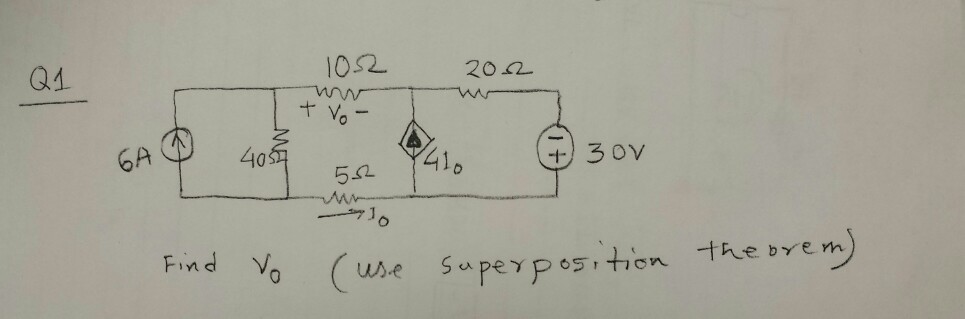 Q1
10Ω 20Ω
+ V₀ -
6A 40Ω 4I₀ - + 30V
5Ω
→ I₀
Find V₀ (use superposition theorem)